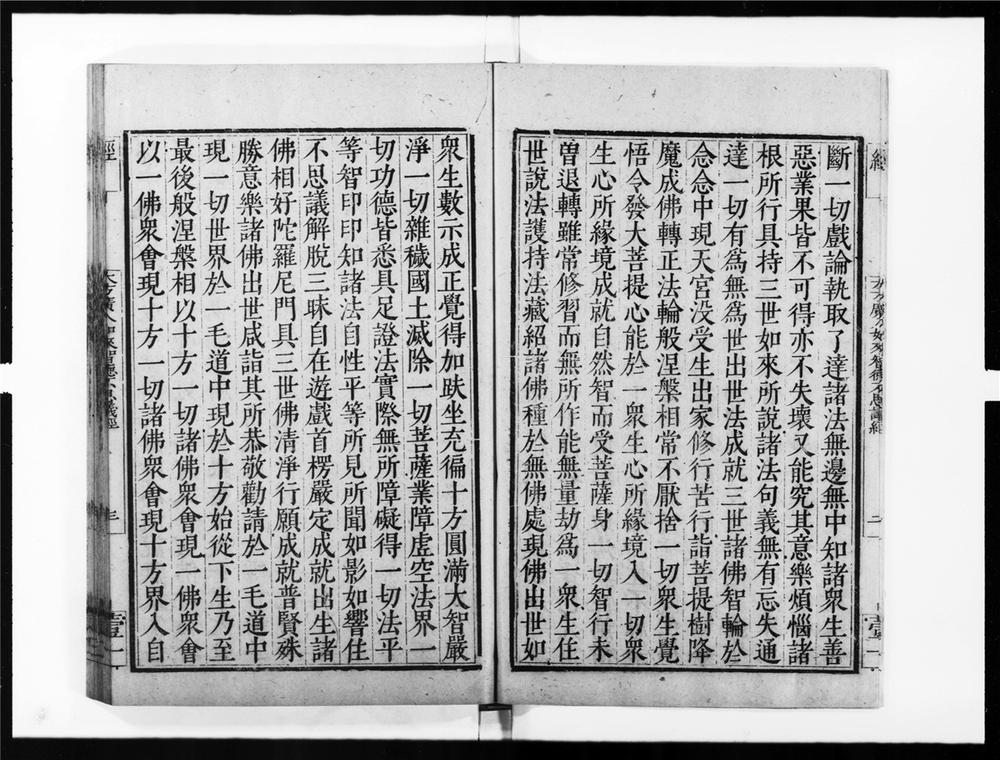 經
大方廣如來智德不思議經
二
壹一
斷一切戲論執取了達諸法無邊無中知諸衆生善
惡業果皆不可得亦不失壞又能究其意樂煩惱諸
根所行具持三世如來所說諸法句義無有忘失通
達一切有爲無爲世出世法成就三世諸佛智輪於
念念中現天宮没受生出家修行苦行詣菩提樹降
魔成佛轉正法輪般涅槃相常不厭捨一切衆生覺
悟令發大菩提心能於一衆生心所緣境入一切衆
生心所緣境成就自然智而受菩薩身一切智行未
曾退轉雖常修習而無所作能無量劫爲一衆生住
世說法護持法藏紹諸佛種於無佛處現佛出世如
衆生數示成正覺得加趺坐充徧十方圓滿大智嚴
淨一切雜穢國土滅除一切菩薩業障虚空法界一
切功德皆悉具足證法實際無所障礙得一切法平
等智印印知諸法自性平等所見所聞如影如響住
不思議解脫三昧自在遊戲首楞嚴定成就出生諸
佛相好陀羅尼門具三世佛清淨行願成就普賢殊
勝意樂諸佛出世咸詣其所恭敬勸請於一毛道中
現一切世界於一毛道中現於十方始從下生乃至
最後般涅槃相以十方一切諸佛衆會現一佛衆會
以一佛衆會現十方一切諸佛衆會現十方界入自
經
大方廣入如來智德不思議經
三
壹一